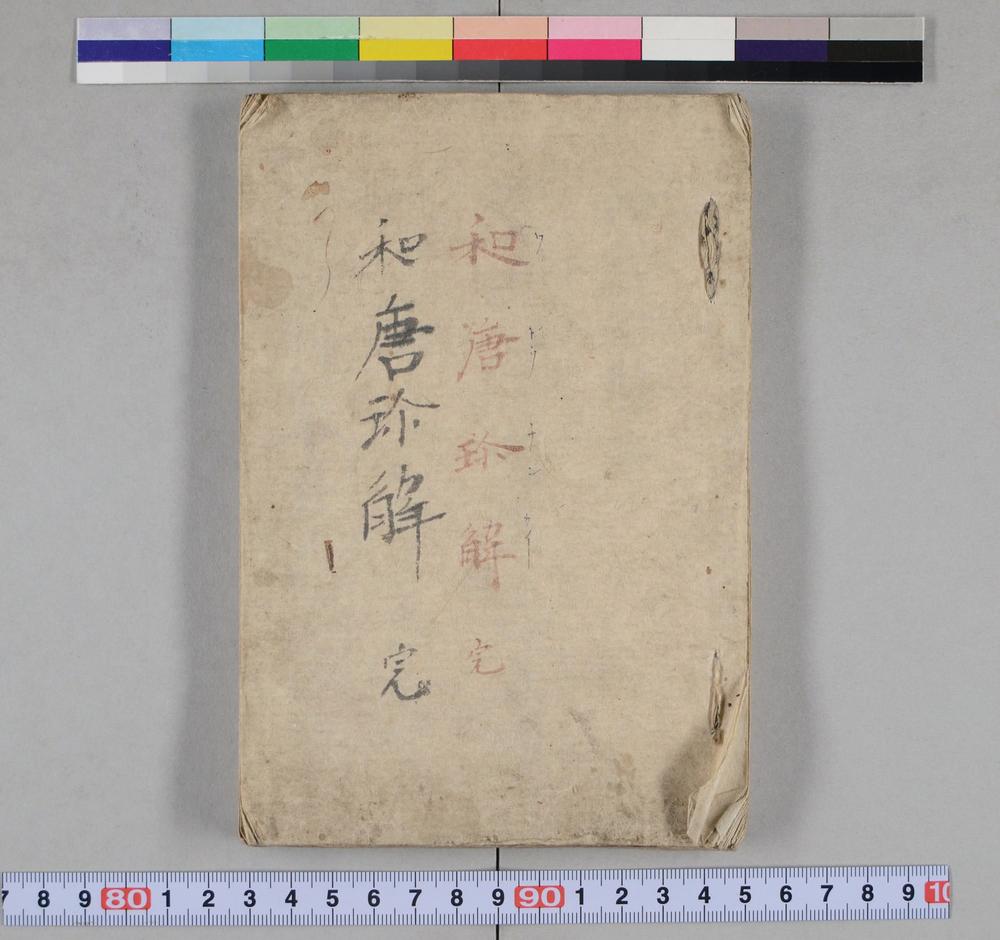 和唐珎解 完
ワ トウ チン カイ
和唐珎解 完
7 8 9 80 1 2 3 4 5 6 7 8 9 90 1 2 3 4 5 6 7 8 9 10